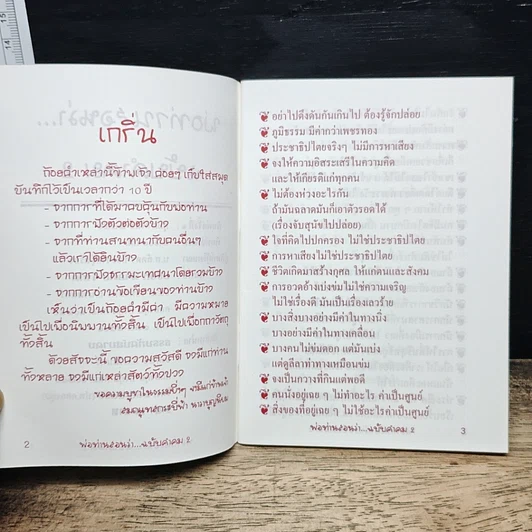 เกริ่น
ถ้อยคำเหล่านี้ข้าพเจ้า ค่อยๆ เก็บใส่สมุด
บันทึกไว้เป็นเวลากว่า 10 ปี
- จากการที่ได้มาคบคุ้นกับพ่อท่าน
- จากการฟังตัวต่อตัวบ้าง
- จากที่ท่านสนทนากับคนอื่นๆ
แล้วเราได้ยินบ้าง
- จากการฟังธรรมะเทศนาโดยรวมบ้าง
- จากการอ่านข้อเขียนของท่านบ้าง
เห็นว่าเป็นถ้อยคำมีค่า - มีความหมาย
เป็นไปเพื่อนิพพานทั้งสิ้น เป็นไปเพื่อกถาวัตถุ
ทั้งสิ้น
ด้วยสัจจะนี้ ขอความสวัสดี จงมีแก่ท่าน
ทั้งหลาย จงมีแก่เหล่าสัตว์ทั้งปวง
2
พ่อท่านสอนว่า...ฉบับคำคม 2
อย่าไปดึงดันกันเกินไป ต้องรู้จักปล่อย
ภูมิธรรม มีค่ากว่าเพชรทอง
ประชาธิปไตยจริงๆ ไม่มีการหาเสียง
จงให้ความอิสระเสรีในความคิด
และให้เกียรติแก่ทุกคน
ไม่ต้องห่วงอะไรกัน
ถ้ามันฉลาดมันก็เอาตัวรอดได้
(เรื่องจับสุนัขไปปล่อย)
ใจที่คิดไปปกครอง ไม่ใช่ประชาธิปไตย
การหาเสียงไม่ใช่ประชาธิปไตย
ชีวิตเกิดมาสร้างกุศล ให้แก่ตนและสังคม
การอวดอ้างเบ่งข่มไม่ใช่ความเจริญ
ไม่ใช่เรื่องดี มันเป็นเรื่องเลวร้าย
บางสิ่งบางอย่างมีค่าในทางนิ่ง
บางอย่างมีค่าในทางเคลื่อน
บางคนไม่ข่มดอก แต่มันเบ่ง
แต่ดูลีลาท่าทางเหมือนข่ม
จงเป็นกวางที่กินแต่พอดี
คนนั่งอยู่เฉย ๆ ไม่ทำอะไร ค่าเป็นศูนย์
สิ่งของที่อยู่เฉย ๆ ไม่ใช้อะไรค่าเป็นศูนย์
พ่อท่านสอนว่า...ฉบับคำคม 2
3